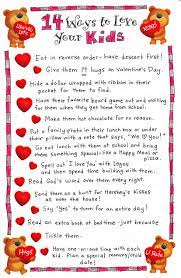 14 Ways to Love
your Kids
Valentine's Day
XOXO
Eat in reverse order - have dessert first!
Give them 14 hugs on Valentine's Day.
Hide a dollar wrapped with ribbon in their
pocket for them to find.
Have their favorite board game out and waiting
for them when they get home from school.
Make them hot chocolate for no reason.
Put a family photo in their lunch box or under
their pillow with a note that says, "We love you!"
Go eat lunch with them at school and bring
them something special-like a Happy Meal or
pizza.
Spell out I love You with Legos
and then spend time building with them.
Read God's word over them every night.
Send them on a hunt for Hershey's kisses
all over the house!
Say "Yes" to them for an entire day!
Read an extra book at bedtime - just because
Tickle them-
Have one-on-one time with each
kid. Plan a special Mommy/child
date.
Hugs
U Rule